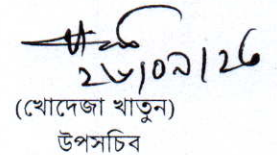 ২৮|০৯|২৫
(খোদেজা খাতুন)
উপসচিব